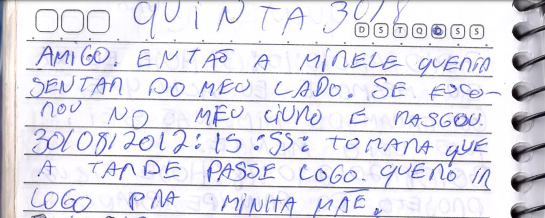 QUINTA 30/8
D S T Q Q S S
AMIGO. ENTAO A MIRELE QUERIA
SENTAR DO MEU LADO. SE ESCO-
ROU NO MEU LIVRO E RASGOU.
30/08/2012: 15:55: TOMARA QUE
A TARDE PASSE LOGO. QUERO IR
LOGO PRA MINHA MÃE.